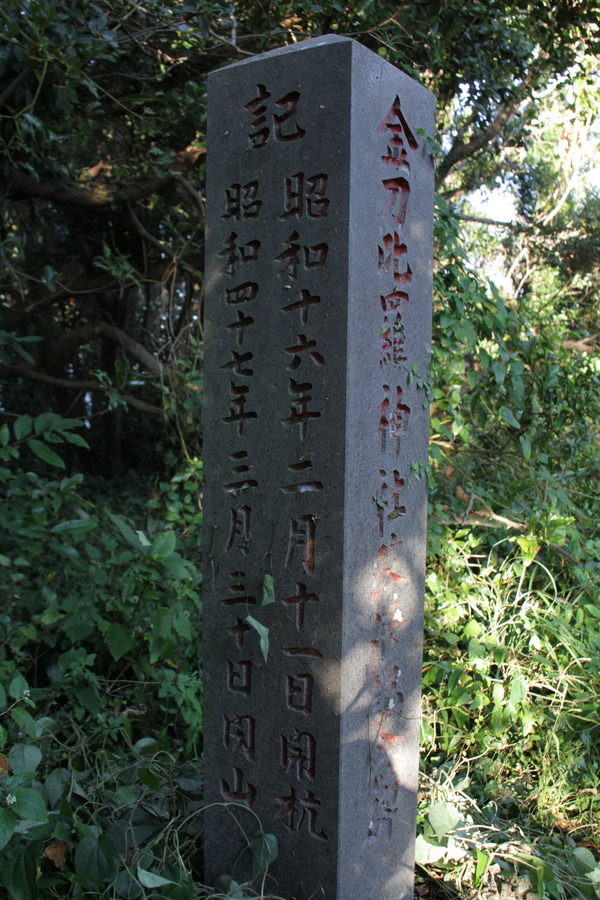 記
昭和十六年二月十一日開坑
昭和四十七年三月三十日閉山
金刀比羅神社